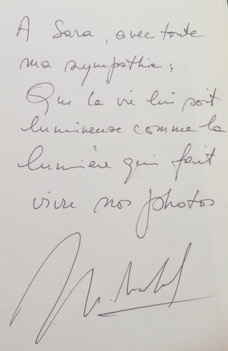 A Sara, avec toute
ma sympathie ;
Que la vie lui soit
lumineuse comme la
lumière qui fait
vivre nos photos